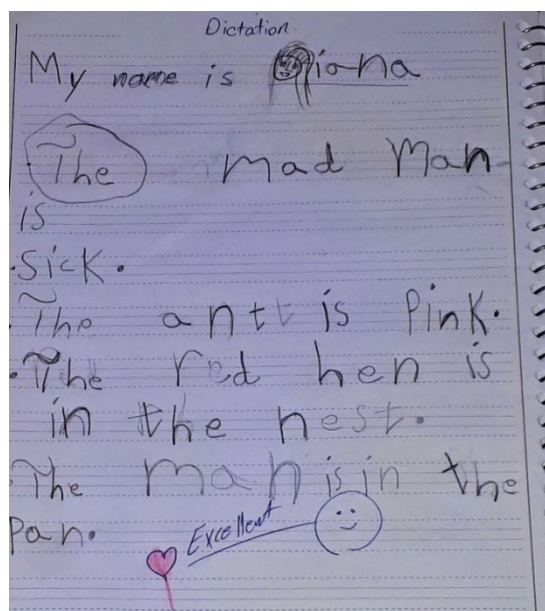 Dictation
My name is Diana
The mad Man
is
.Sick.
.The antt is Pink.
.The red hen is
in the nest.
.The man is in the
Pan.
Excellent